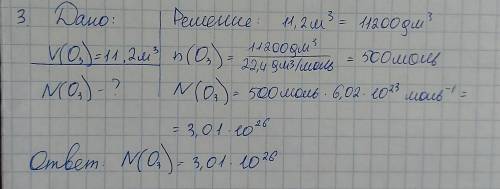 3. Дано: Решение: 11,2м³ = 11200дм³
V(O₃)=11,2м³ n(O₃) = 11200дм³ / 22,4дм³/моль = 500моль
N(O₃) - ? N(O₃) = 500моль · 6,02 · 10²³ моль⁻¹ =
= 3,01 · 10²⁶
Ответ: N(O₃) = 3,01 · 10²⁶